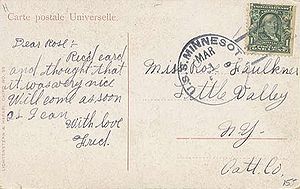 Carte postale Universelle
Dear Rose:
Rec'd card
and thought that
it was very nice
Will come as soon
as I can
With love
Fred.
U.S.S. MINNESOT
MAR
Miss Rose Faulkner
Little Valley
N.Y.
Catt. Co.
15¢